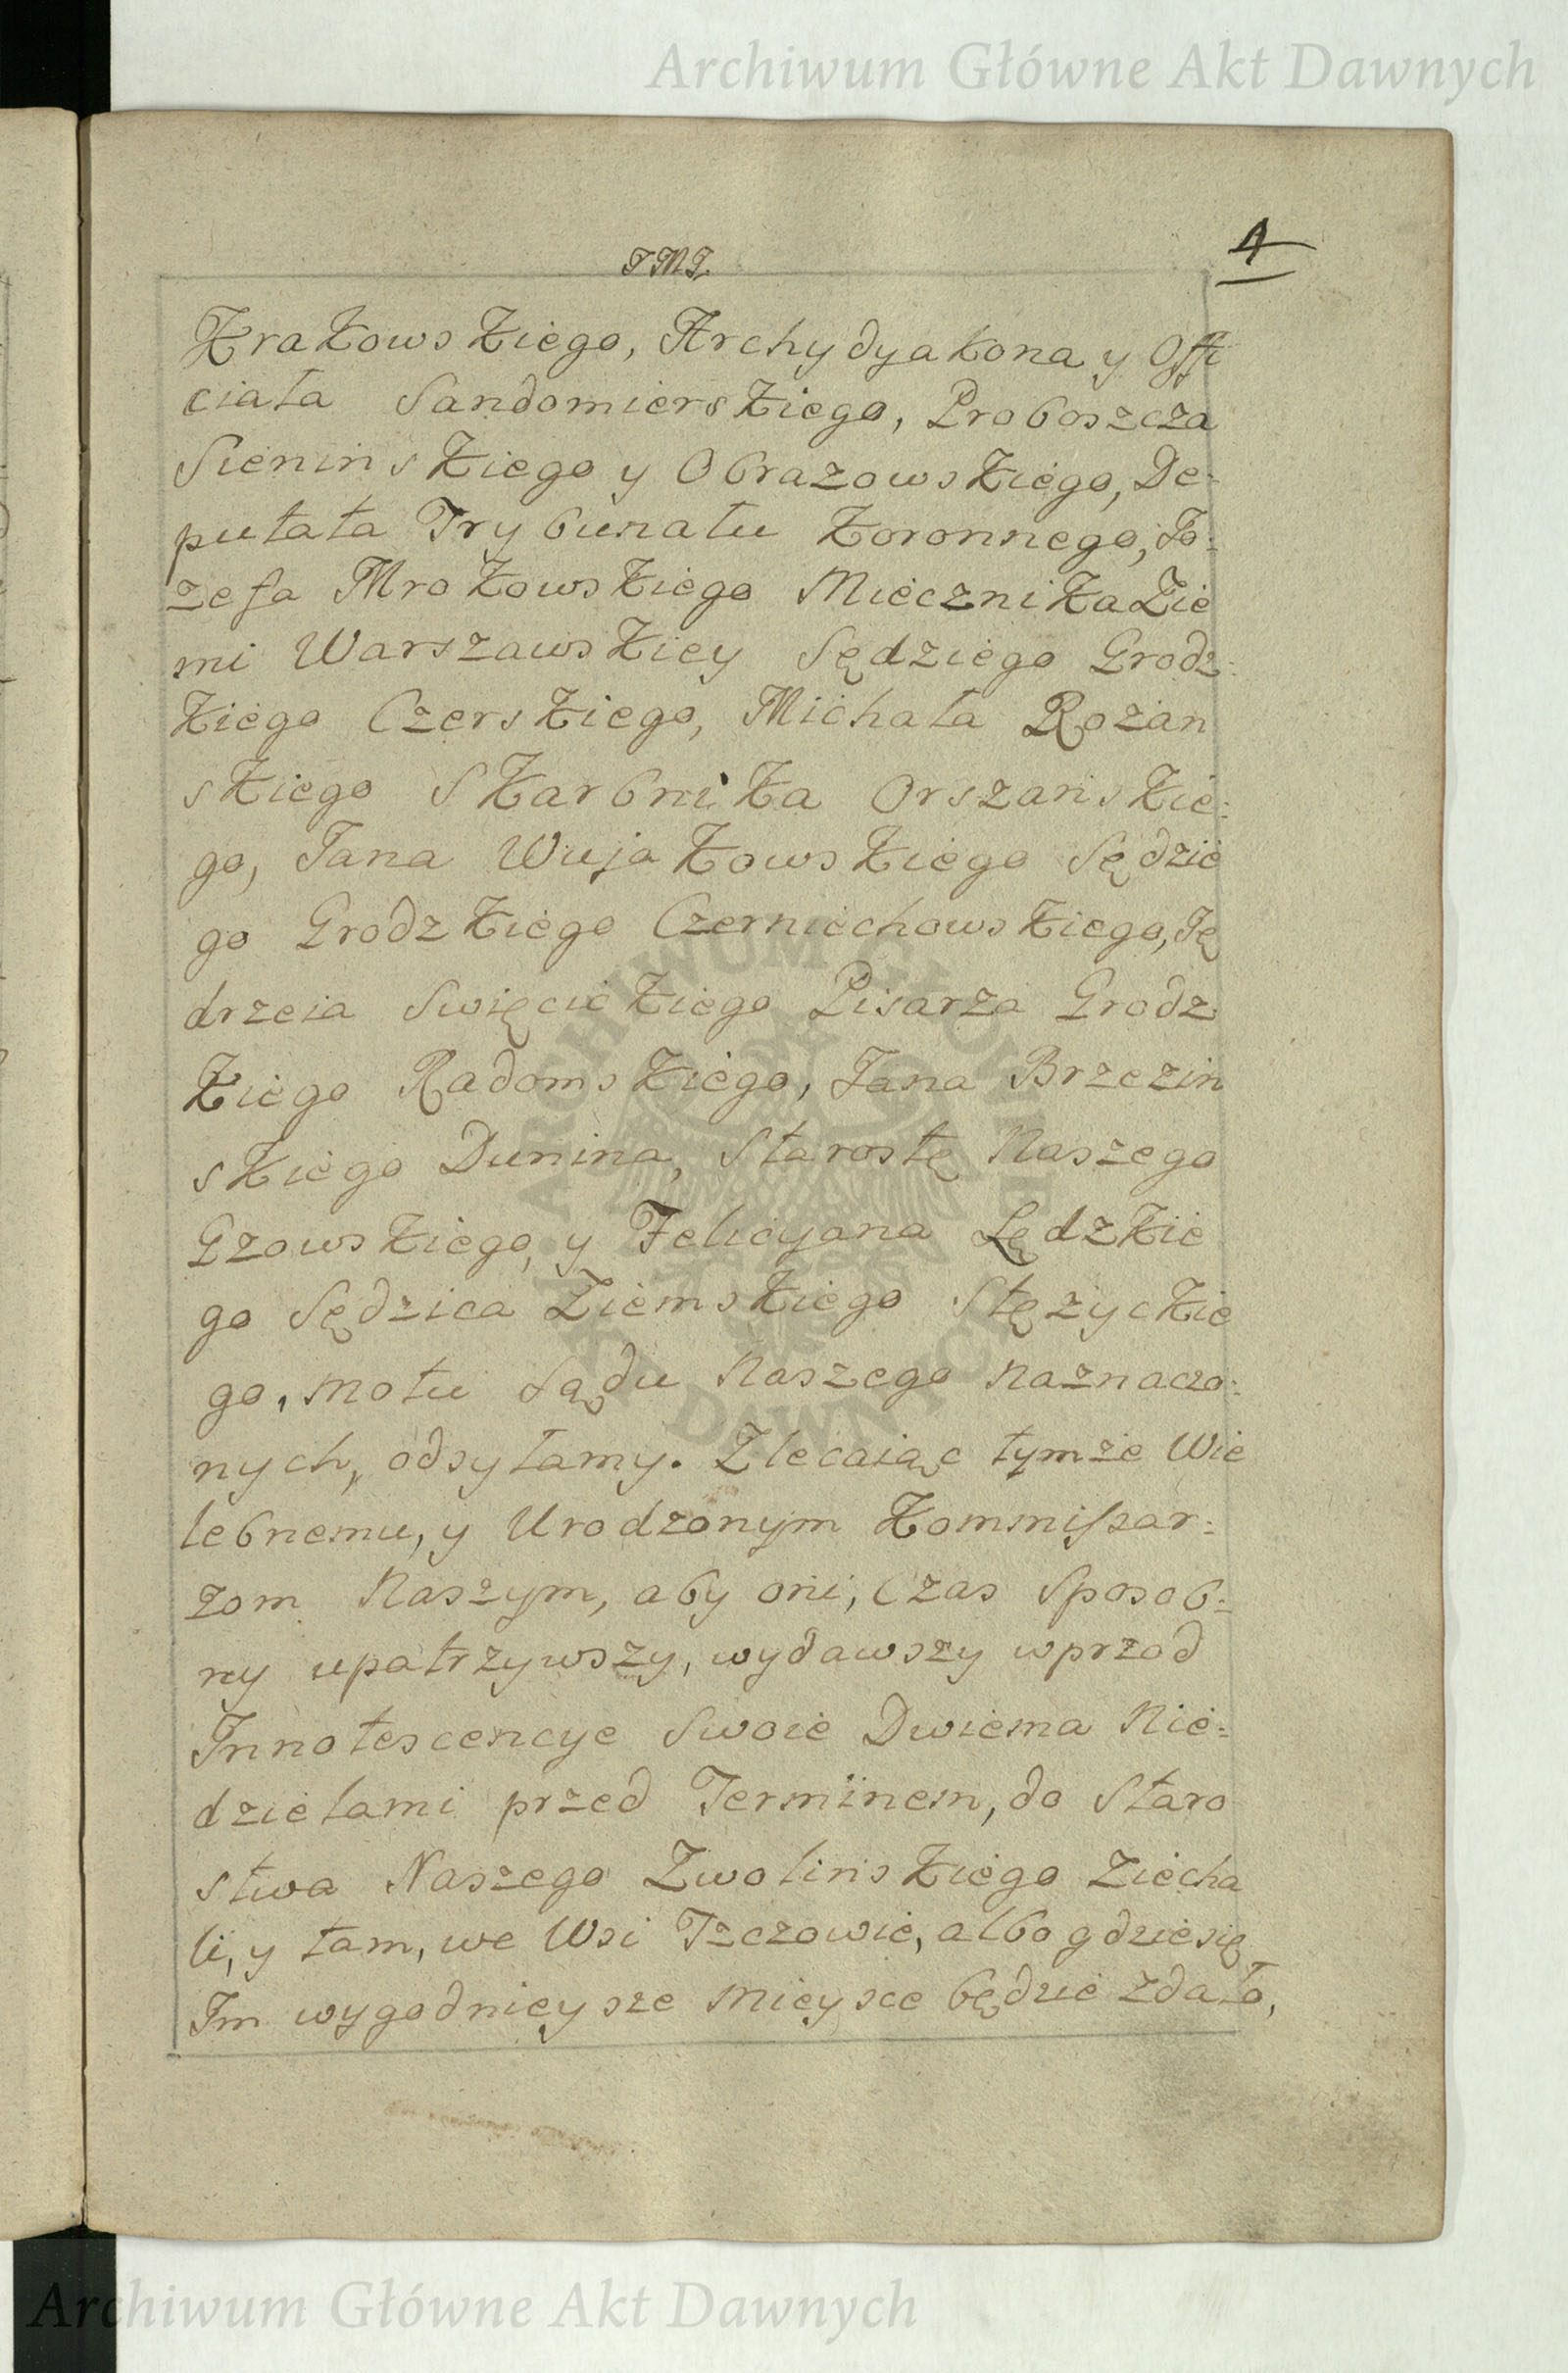 Archiwum Główne Akt Dawnych
4
J.M.J.
Krakowskiego, Archydyakona y Offi
ciała Sandomierskiego, Proboszcza
Sieninskiego y Obrazowskiego, De-
putata Trybunału Koronnego, Jo-
zefa Mrokowskiego Miecznika Zie
mi Warszawskiey Sędziego Grodz-
kiego Czerskiego, Michała Rożan
skiego Skarbnika Orszanskie-
go, Jana Wujakowskiego Sędzie
go Grodzkiego Czerniechowskiego, Ję
drzeia Swięcickiego Pisarza Grodz
kiego Radomskiego, Jana Brzezin
skiego Dunina, Starostę Naszego
Gzowskiego, y Felicyana Lędzkie
go Sędzica Ziemskiego Stężyckie
go, motu Sądu Naszego naznaczo-
nych, odsyłamy. Zlecaiąc tymże Wie
lebnemu, y Urodzonym Kommissar-
zom Naszym, aby oni, czas sposob-
ny upatrzywszy, wydawszy wprzod
Innotescencye Swoie Dwiema Nie-
dzielami przed Terminem, do Staro
stwa Naszego Zwolinskiego Ziecha
li, y tam, we Wsi Tczowie, albo gdzie się
Im wygodnieysze mieysce będzie zdało,
ARCHIWUM GŁÓWNE AKT DAWNYCH
Archiwum Główne Akt Dawnych